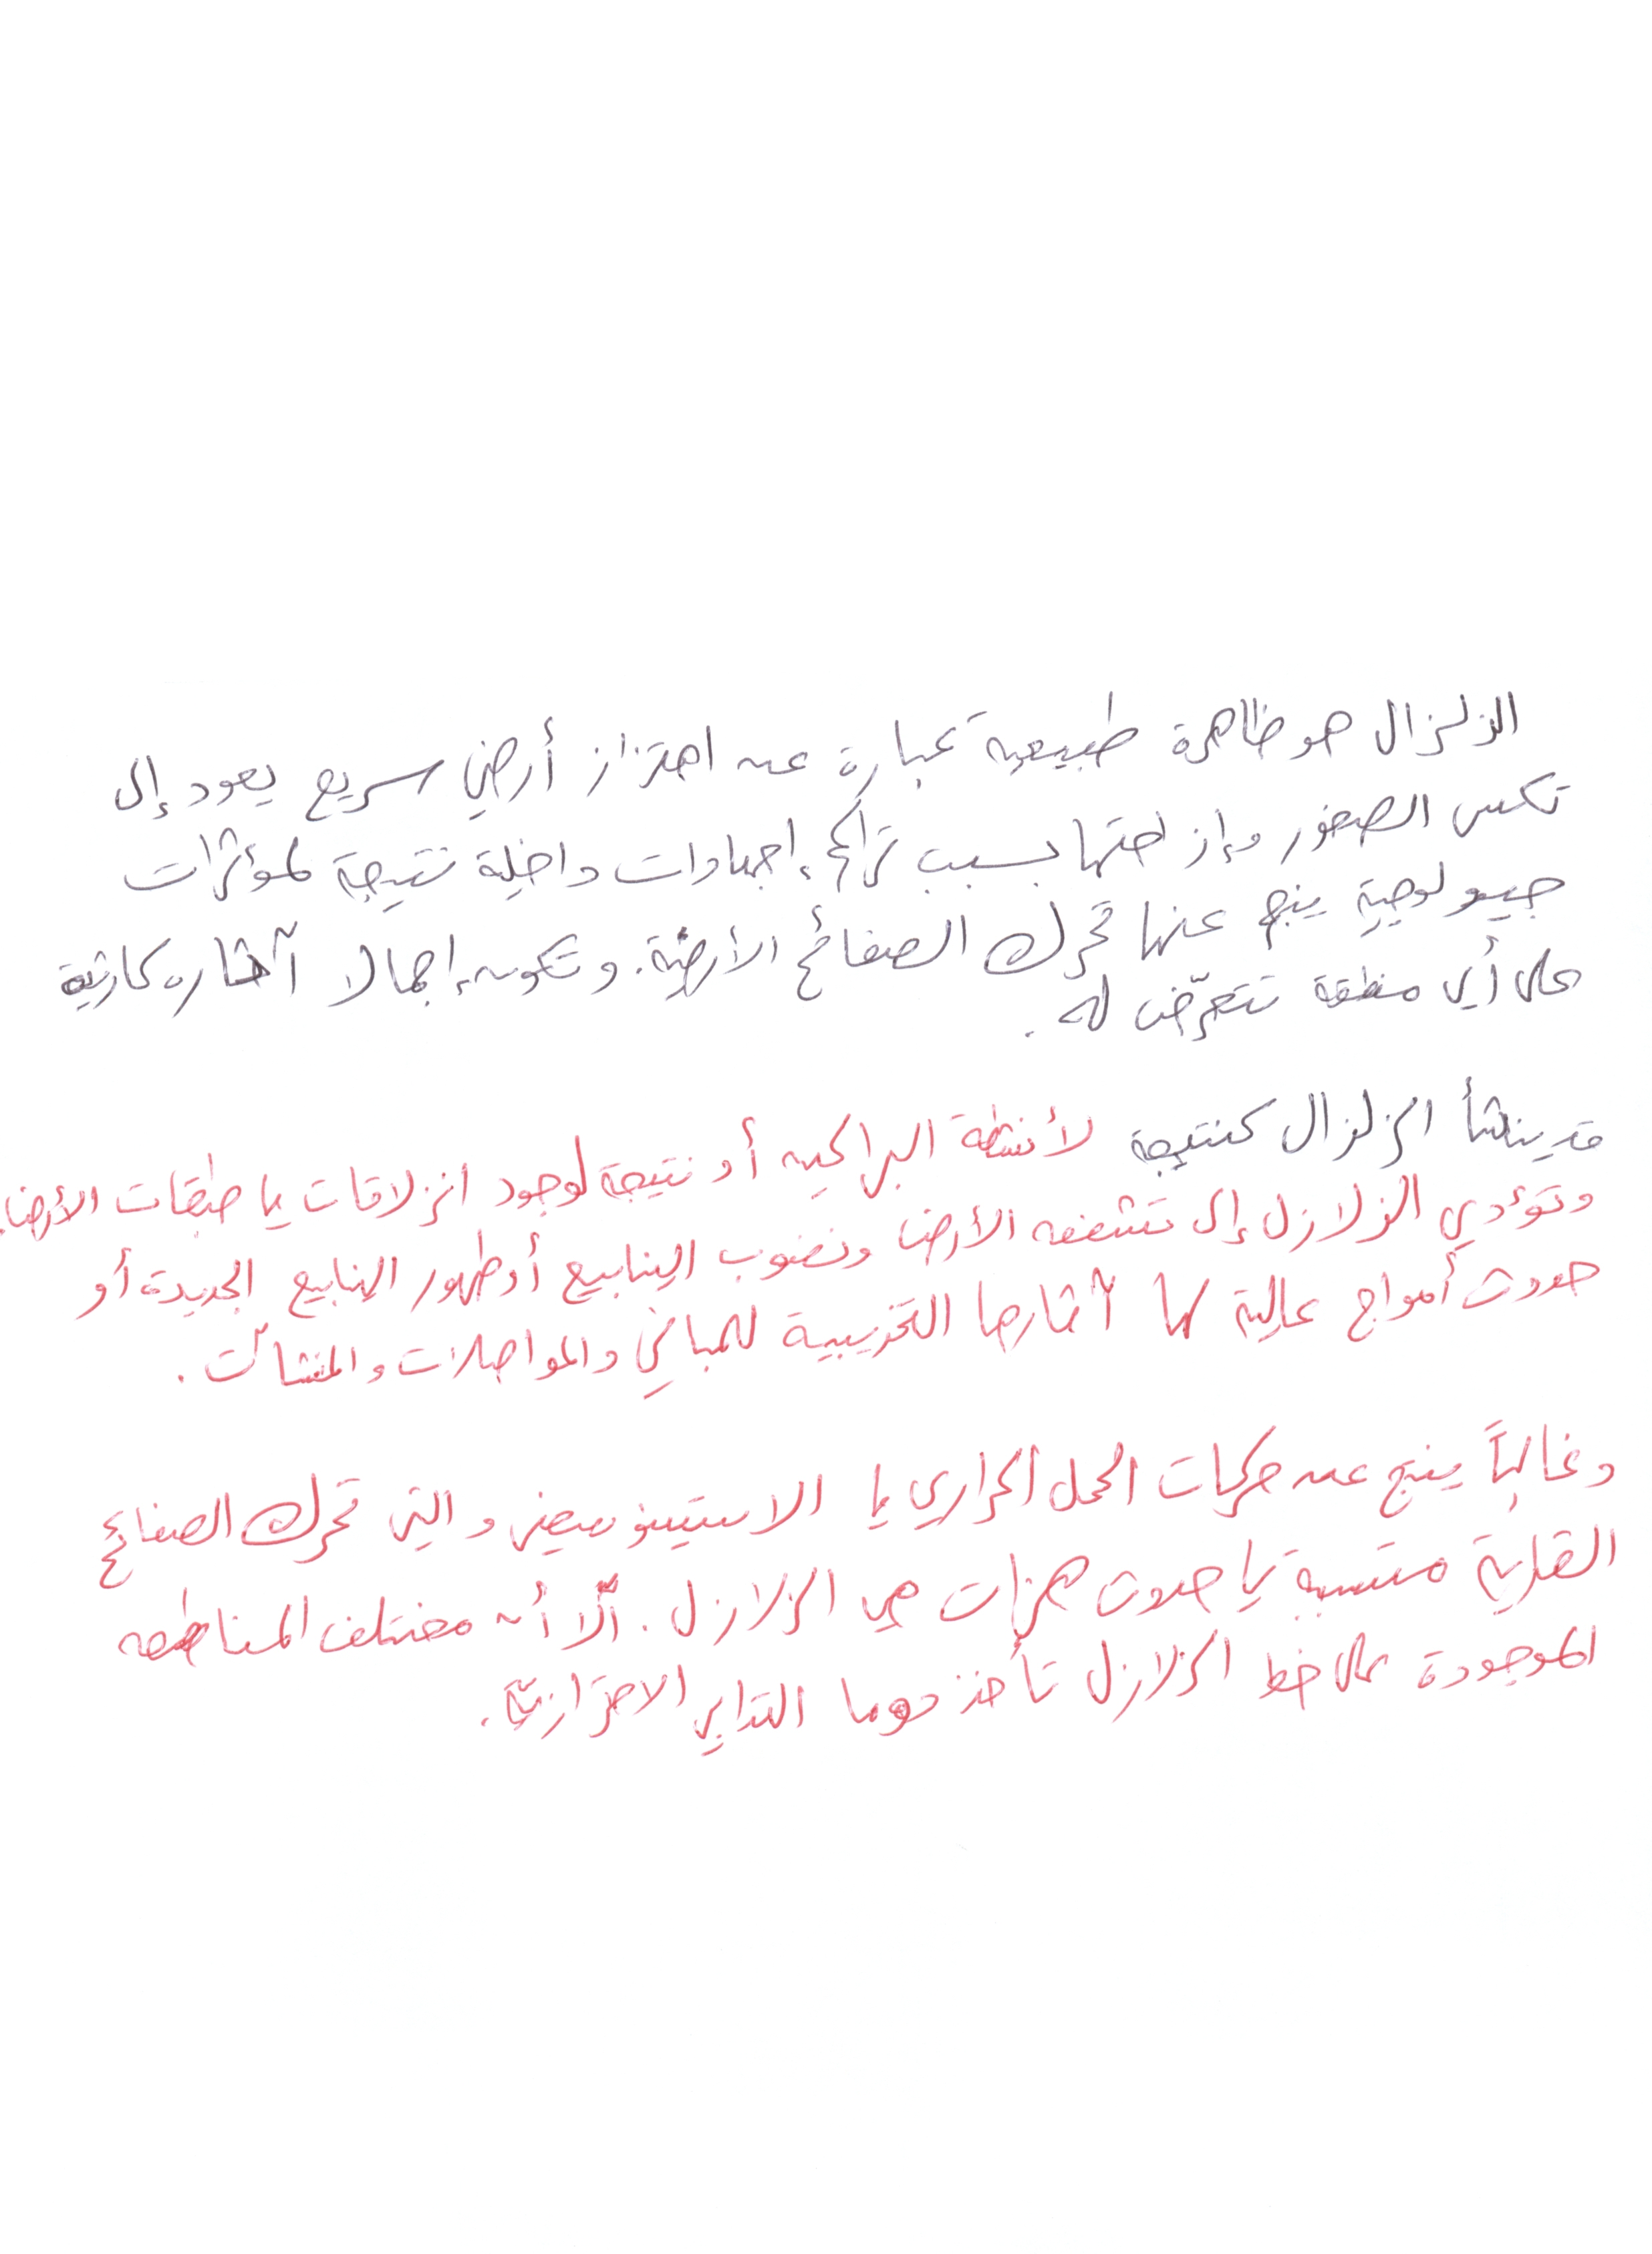 الزلزال هو ظاهرة طبيعية عبارة عن اهتزاز أرضي سريع يعود إلى
تكسر الصخور وإزاحتها بسبب تراكم إجهادات داخلية نتيجة لمؤثرات
جيولوجية ينجم عنها تحرك الصفائح الأرضية. وتكون إجمالا آثاره كارثية
على أي منطقة تتعرّض له.
قد ينشأ الزلزال كنتيجة لأنشطة البراكين أو نتيجة لوجود انزلاقات في طبقات الأرض.
وتؤدي الزلازل إلى تشقق الأرض ونضوب الينابيع أو ظهور الينابيع الجديدة أو
حدوث أمواج عالية لها آثارها التخريبية للمباني والمواصلات والمنشآت.
وغالباً ينتج عن حركات الحمل الحراري في الاستينوسفير والتي تحرك الصفائح
القارية متسببة في حدوث هزات هي الزلازل. ألّا أن مختلف المناطق
الموجودة على خط الزلازل تأخذ دوما التدابير الاحترازيّة.